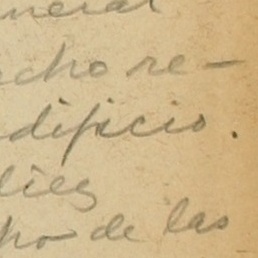 neral
echo re-
dificio.
diez
ho de las